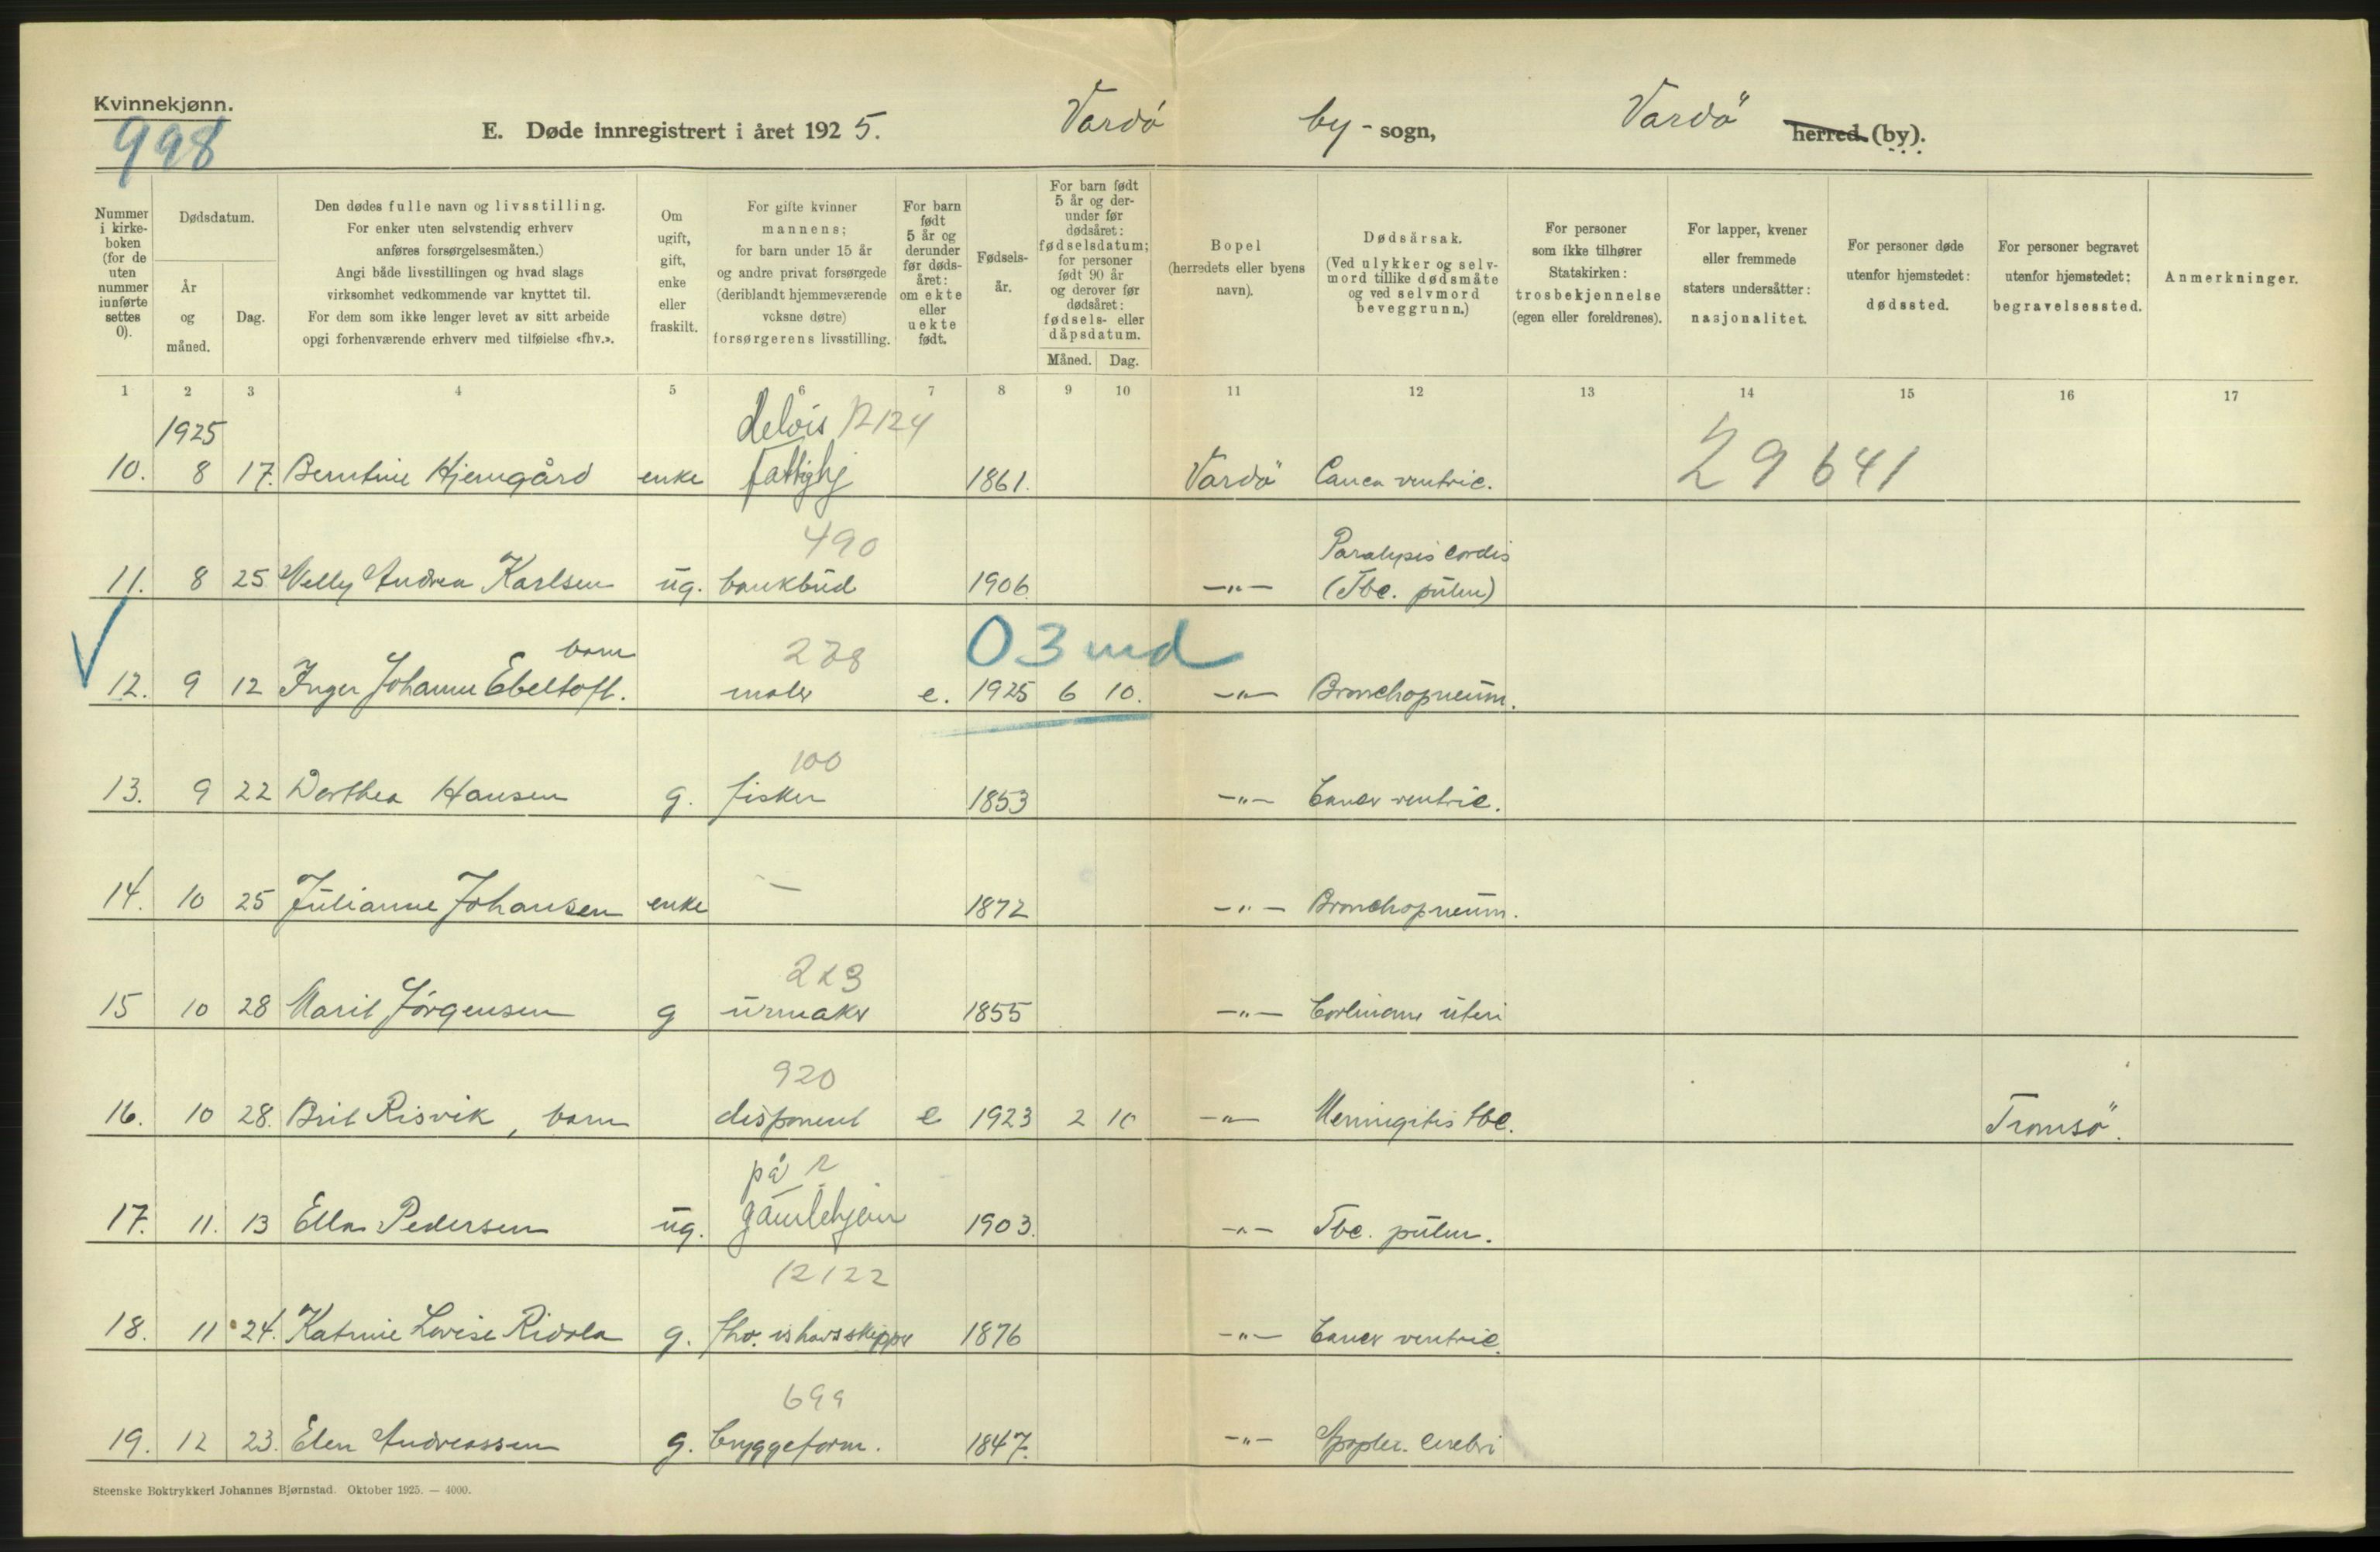 Kvinnekjønn.
998
E. Døde innregistrert i året 1925. Vardö by - sogn, Vardö herred (by).
Nummer i kirke-boken (for de uten nummer innførte settes 0).
Dødsdatum.
År og måned.
Dag.
Den dødes fulle navn og livsstilling.
For enker uten selvstendig erhverv
anføres forsørgelsesmåten.)
Angi både livsstillingen og hvad slags
virksomhet vedkommende var knyttet til.
For dem som ikke lenger levet av sitt arbeide
opgi forhenværende erhverv med tilføielse «fhv.».
Om ugift, gift, enke eller fraskilt.
For gifte kvinner
mannens;
for barn under 15 år
og andre privat forsørgede
(deriblandt hjemmeværende
voksne døtre)
forsørgerens livsstilling.
For barn født 5 år og derunder før døds-året: om ekte eller uekte født.
Fødsels-år.
For barn født 5 år og der-under før dødsåret: fødselsdatum; for personer født 90 år og derover før dødsåret: fødsels- eller dåpsdatum.
Måned. Dag.
Bopel
(herredets eller byens
navn).
Dødsårsak.
(Ved ulykker og selv-
mord tillike dødsmåte
og ved selvmord
beveggrunn.)
For personer
som ikke tilhører
Statskirken:
trosbekjennelse
(egen eller foreldrenes).
For lapper, kvener
eller fremmede
staters undersåtter:
nasjonalitet.
For personer døde
utenfor hjemstedet:
dødssted.
For personer begravet
utenfor hjemstedet:
begravelsessted.
Anmerkninger.
1 2 3 4 5 6 7 8 9 10 11 12 13 14 15 16 17
1925 delvis 12124
10. 8 17. Berntine Hjemgård enke fattighj 1861. Vardö Cancer ventric. 29641
490 Paralysis cordis
11. 8 25 Welly Andrea Karlsen ug. bankbud 1906. -"- (Tbc. pulm)
barn 278 03 md
12. 9 12 Inger Johanne Ebeltoft. maler e. 1925 6 10. -"- Bronchopneum.
100
13. 9 22 Dorthea Hansen g. fisker 1853 -"- Cancer ventric.
14. 10 25 Julianne Johansen enke — 1872 -"- Bronchopneum.
223
15 10 28 Marit Jörgensen g urmaker 1855 -"- uteri
920
16. 10 28. Brit Risvik, barn disponent e 1923 2 10 -"- Meningitis tbc. Tromsö.
på
17. 11. 13 Ella Pedersen ug. gamlehjem 1903. -"- Tbc. pulm.
12122
18. 11 24. Katrine Lovise Ridola g. fhv. ishavsskipper 1876 -"- Cancer ventric.
699
19. 12 23. Elen Andreassen g. bryggeform. 1847. -"- Apoplex. cerebri
Steenske Boktrykkeri Johannes Bjørnstad. Oktober 1925. — 4000.